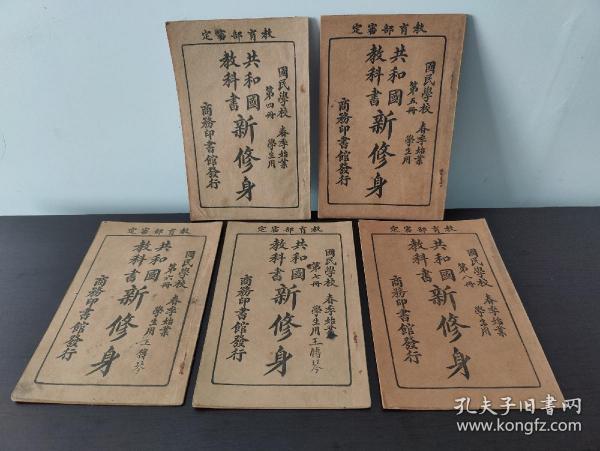 教育部審定
國民學校
春季始業
學生用
第四冊
共和國
教科書
新修身
商務印書館發行
教育部審定
國民學校
春季始業
學生用
第五冊
共和國
教科書
新修身
商務印書館發行
教育部審定
國民學校
春季始業
學生用
第六冊
共和國
教科書
新修身
商務印書館發行
教育部審定
國民學校
春季始業
學生用
第七冊
共和國
教科書
新修身
商務印書館發行
教育部審定
國民學校
春季始業
學生用
第八冊
共和國
教科書
新修身
商務印書館發行
孔夫子旧书网
www.kongfz.com